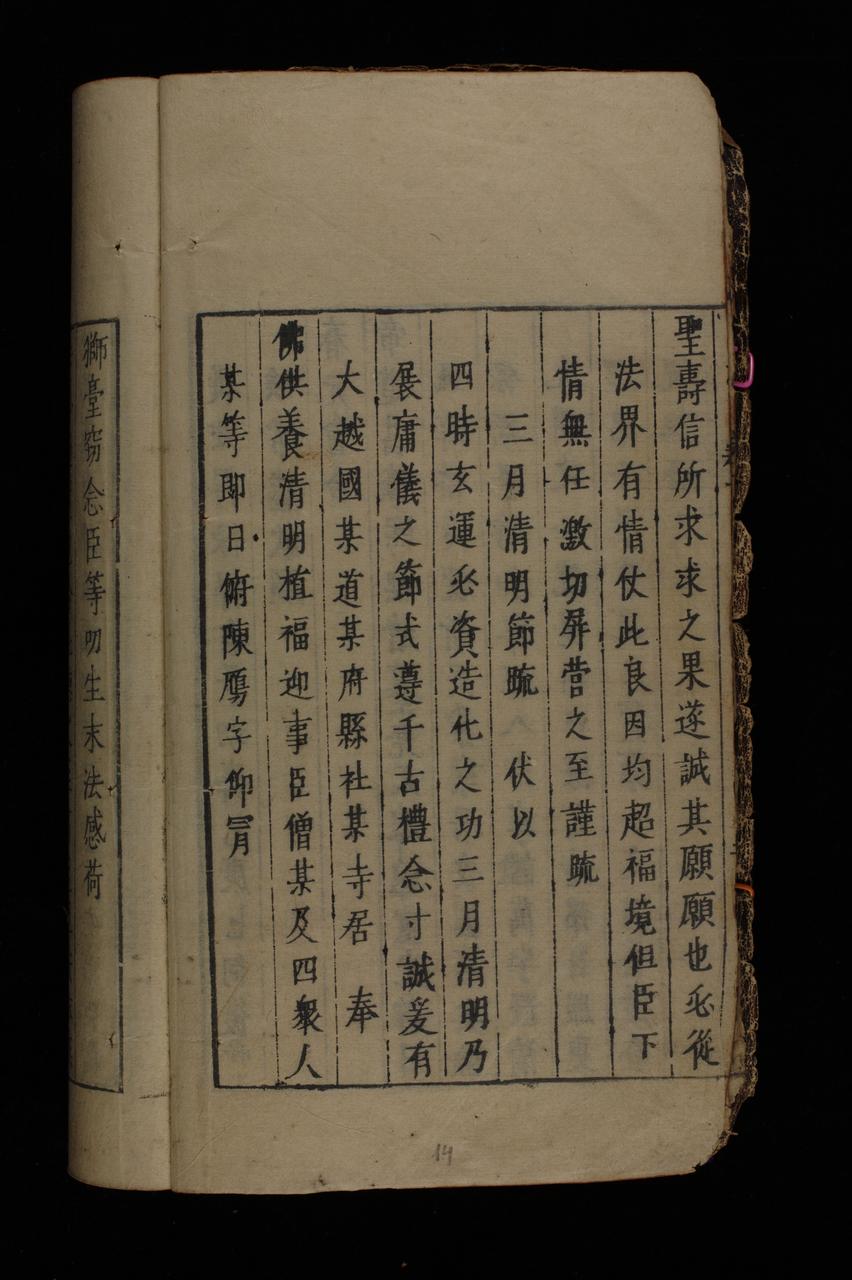 聖壽信所求求之果遂誠其願願也必從
法界有情仗此良因均超福境但臣下
情無任激切屏营之至謹疏
三月清明節疏 伏以
四時玄運必資造化之功三月清明乃
展庸儀之節式遵千古禮念寸誠爰有
大越國某道某府縣社某寺居 奉
佛供養清明植福迎事臣僧某及四衆人
某等即日俯陳鴈字仰冐
獅臺窃念臣等叨生末法感荷
14